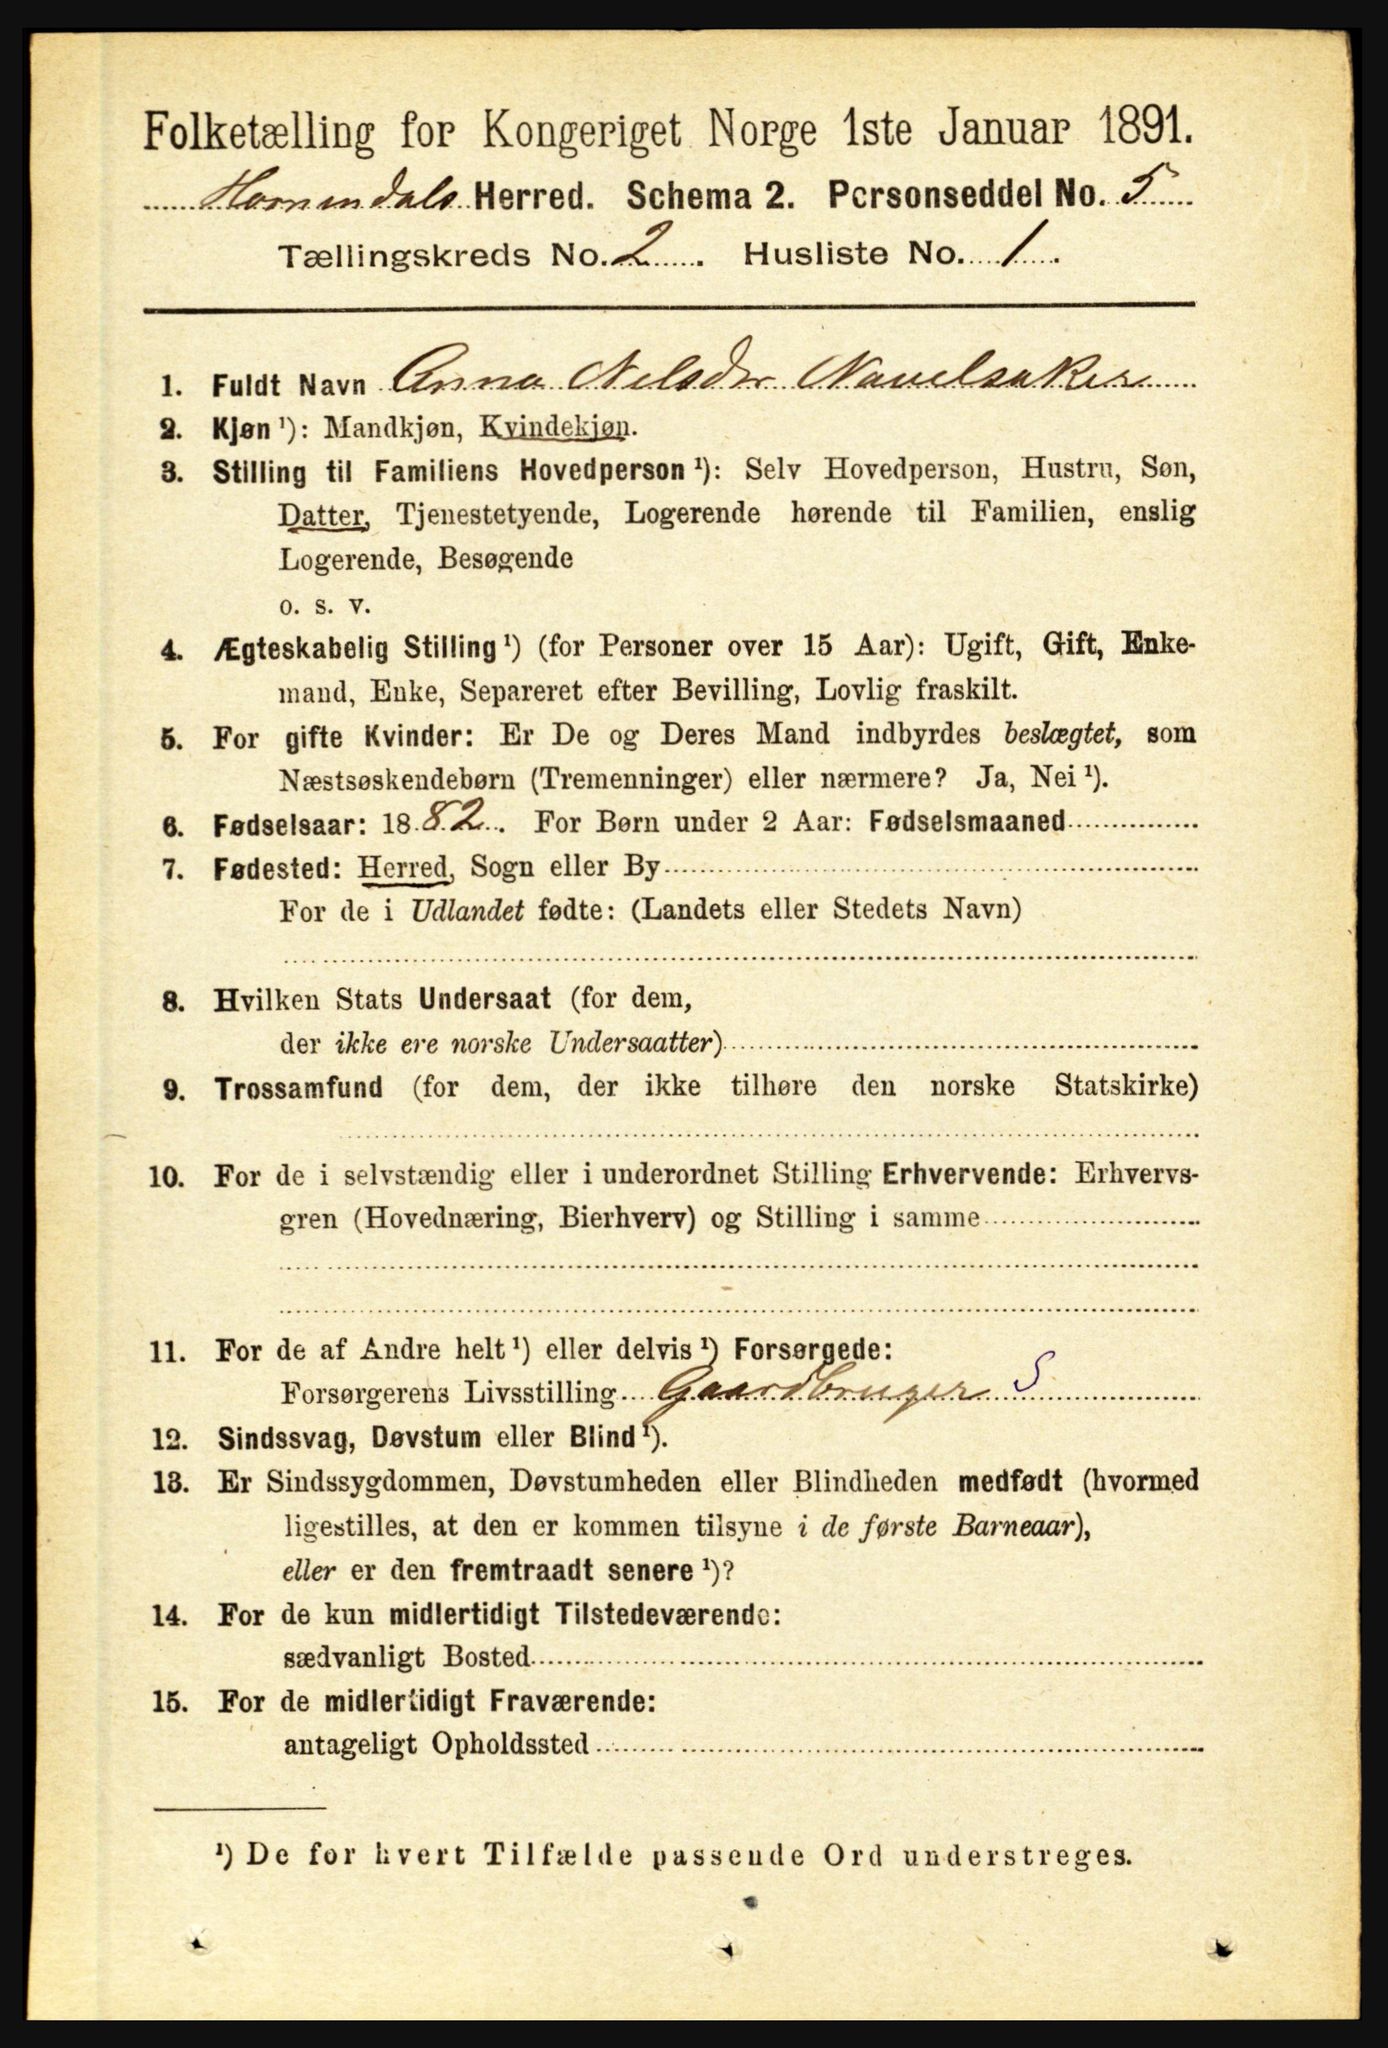 Folketælling for Kongeriget Norge 1ste Januar 1891.
Hornindals Herred. Schema 2. Personseddel No. 5
Tællingskreds No. 2. Husliste No. 1.
1. Fuldt Navn Anna Nelsdr Navelsaker
2. Kjøn ¹): Mandkjøn, Kvindekjøn.
3. Stilling til Familiens Hovedperson ¹): Selv Hovedperson, Hustru, Søn,
Datter, Tjenestetyende, Logerende hørende til Familien, enslig
Logerende, Besøgende
o. s. v.
4. Ægteskabelig Stilling ¹) (for Personer over 15 Aar): Ugift, Gift, Enke-
mand, Enke, Separeret efter Bevilling, Lovlig fraskilt.
5. For gifte Kvinder: Er De og Deres Mand indbyrdes beslægtet, som
Næstsøskendebørn (Tremenninger) eller nærmere? Ja, Nei ¹).
6. Fødselsaar: 1882. For Børn under 2 Aar: Fødselsmaaned
7. Fødested: Herred, Sogn eller By
For de i Udlandet fødte: (Landets eller Stedets Navn)
8. Hvilken Stats Undersaat (for dem,
der ikke ere norske Undersaatter)
9. Trossamfund (for dem, der ikke tilhøre den norske Statskirke)
10. For de i selvstændig eller i underordnet Stilling Erhvervende: Erhvervs-
gren (Hovednæring, Bierhverv) og Stilling i samme
11. For de af Andre helt ¹) eller delvis ¹) Forsørgede:
Forsørgerens Livsstilling Gaardbruger S
12. Sindssvag, Døvstum eller Blind ¹).
13. Er Sindssygdommen, Døvstumheden eller Blindheden medfødt (hvormed
ligestilles, at den er kommen tilsyne i de første Barneaar),
eller er den fremtraadt senere ¹)?
14. For de kun midlertidigt Tilstedeværende:
sædvanligt Bosted
15. For de midlertidigt Fraværende:
antageligt Opholdssted
¹) De for hvert Tilfælde passende Ord understreges.